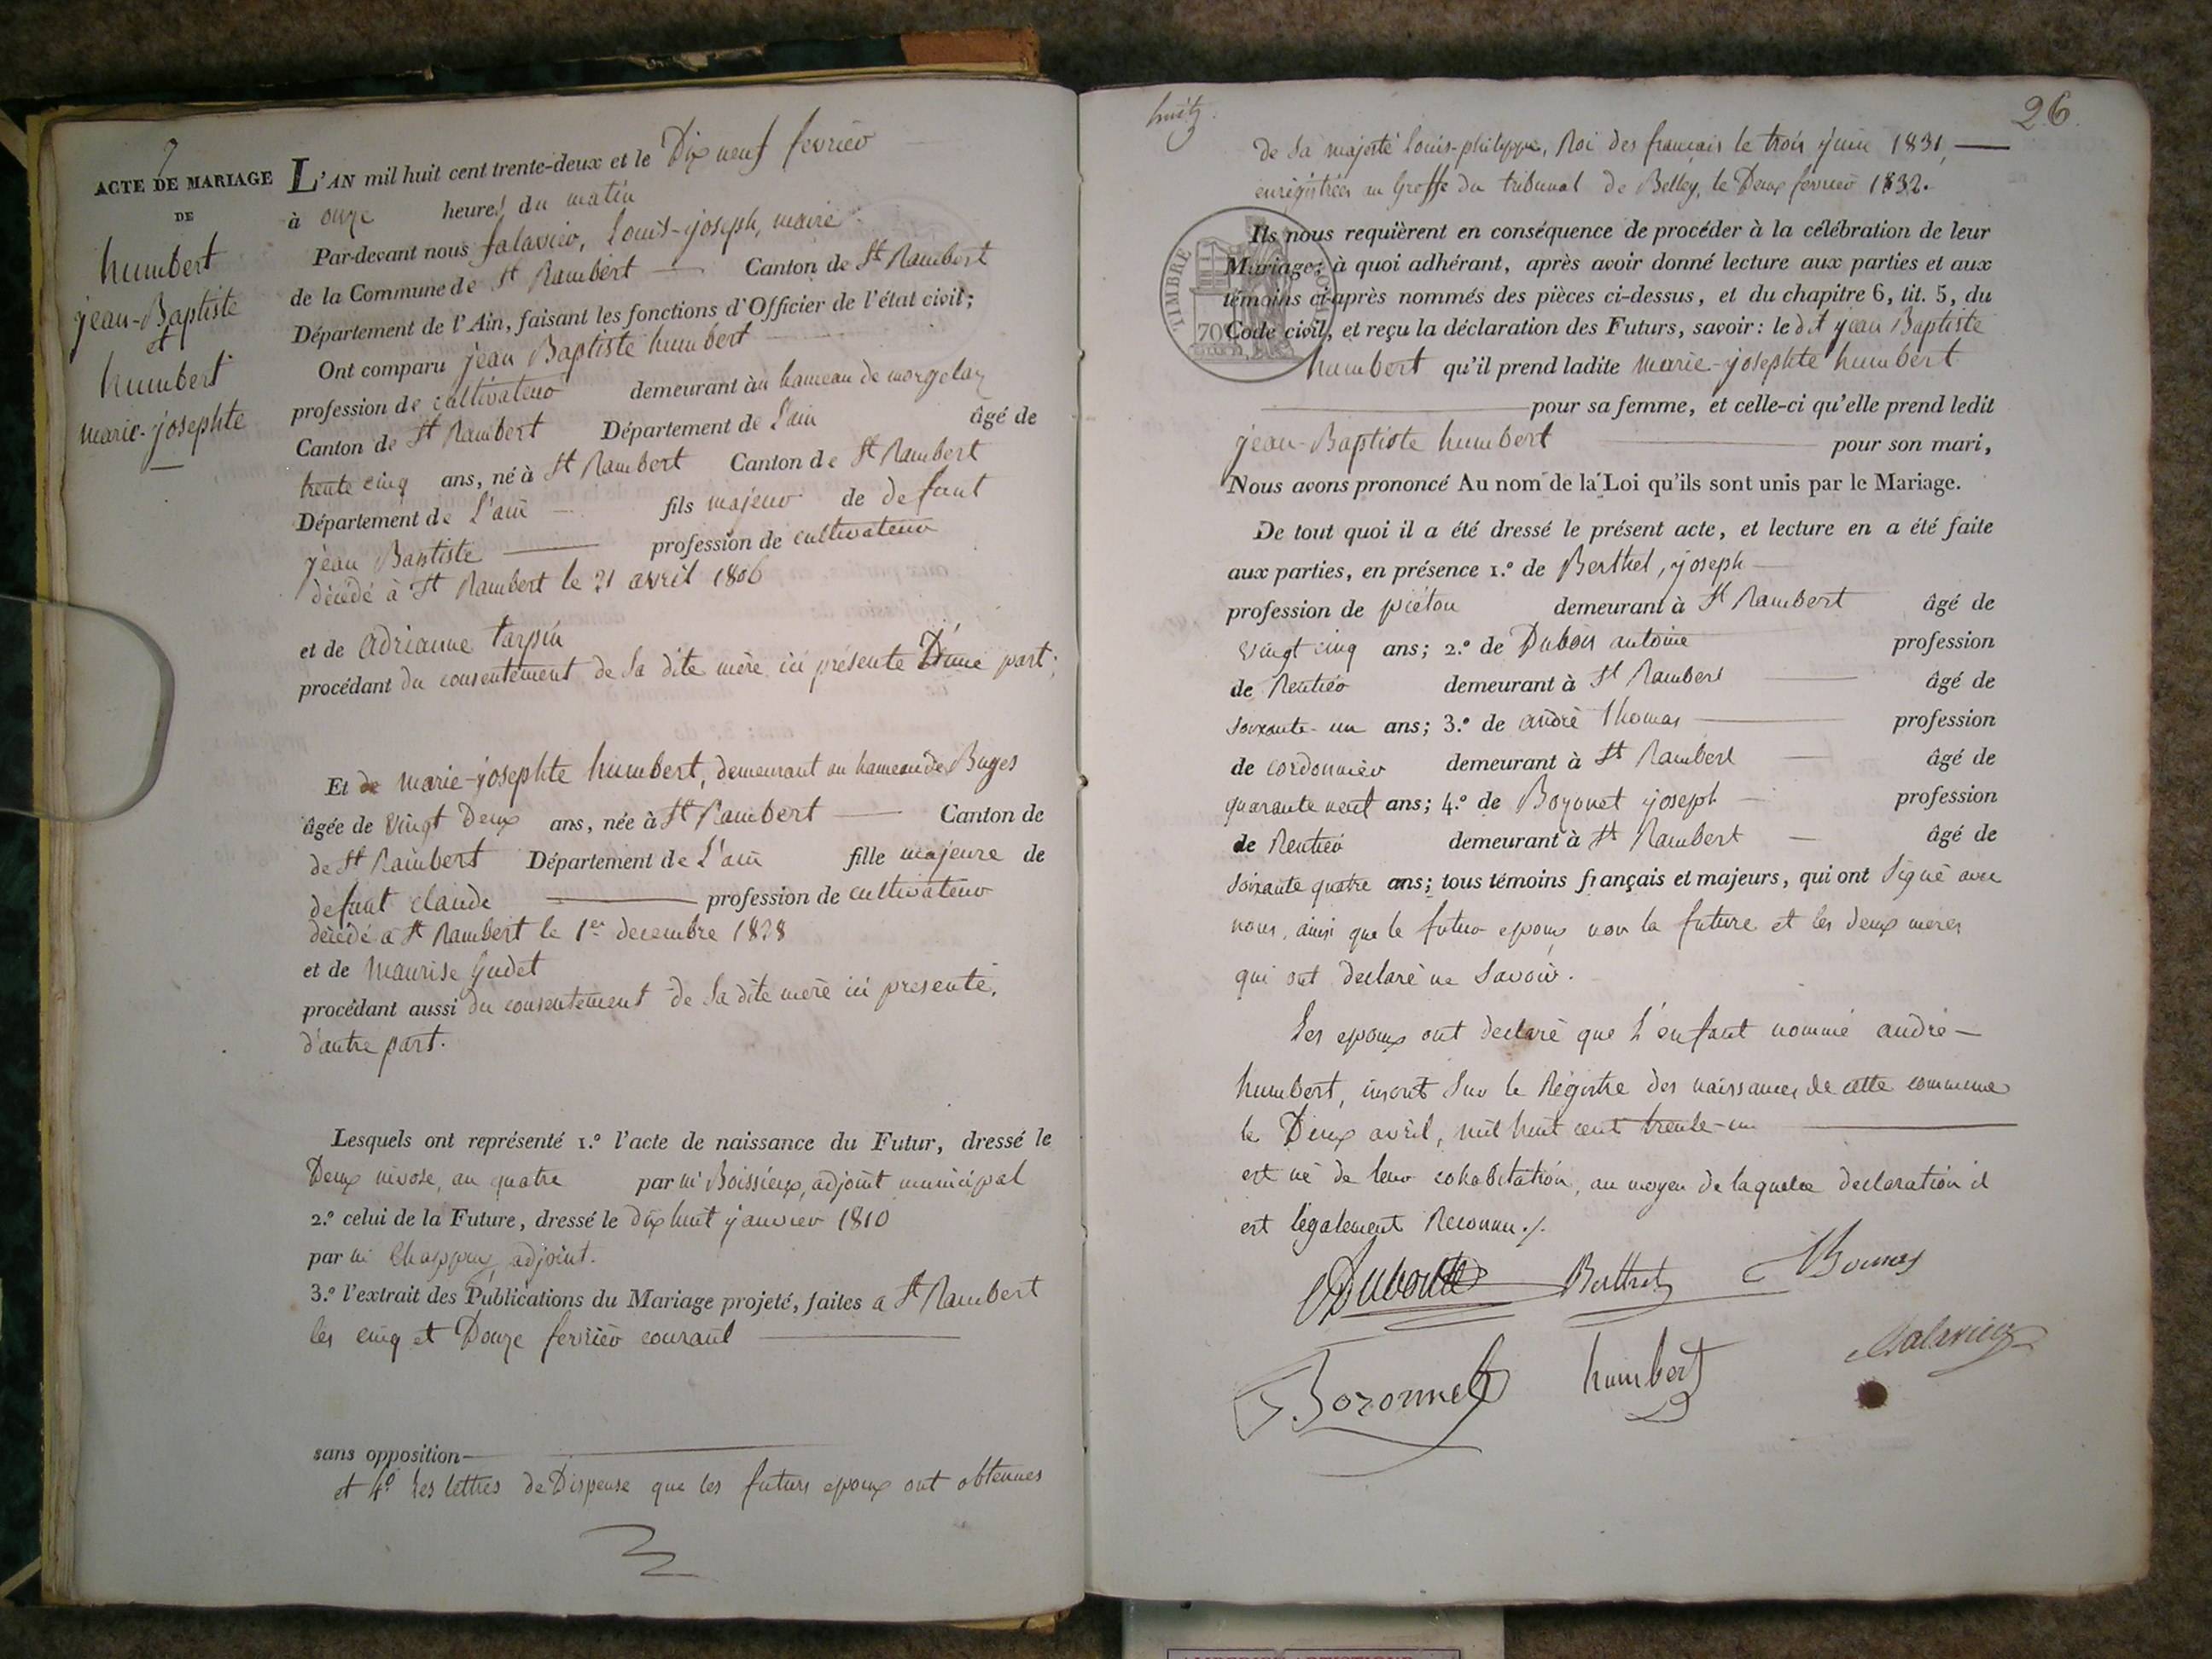 7
ACTE DE MARIAGE
DE
humbert
jean-Baptiste
et
humbert
marie-josephte
L'AN mil huit cent trente-deux et le Dix neuf fevrier
à onze heures du matin
Par-devant nous falavier, Louis-joseph, maire
de la Commune de St Rambert Canton de St Rambert
Département de l'Ain, faisant les fonctions d'Officier de l'état civil;
Ont comparu jean Baptiste humbert
profession de cultivateur demeurant au hameau de morgelas
Canton de St Rambert Département de L'ain âgé de
trente cinq ans, né à St Rambert Canton de St Rambert
Département de L'ain fils majeur de defunt
jean Baptiste profession de cultivateur
décédé à St Rambert le 21 avril 1806
et de Adrianne tarpin
procédant du consentement de sa dite mère ici présente D'une part;
Et de marie-josephte humbert, demeurant au hameau de Buges
âgée de vingt Deux ans, née à St Rambert Canton de
de St Rambert Département de L'ain fille majeure de
defunt claude profession de cultivateur
décédé à St Rambert le 1er decembre 1828
et de Maurise Gudet
procédant aussi du consentement de sa dite mère ici presente,
d'autre part.
Lesquels ont représenté 1.º l'acte de naissance du Futur, dressé le
Deux nivose, an quatre par m Boissieux, adjoint municipal
2.º celui de la Future, dressé le dix huit janvier 1810
par m Chappuy, adjoint.
3.º l'extrait des Publications du Mariage projeté, faites a St Rambert
les cinq et Douze fevrier courant
sans opposition
et 4º les lettres de Dispense que les futurs epoux ont obtenues
huit
26
de sa majesté Louis-philippe, Roi des français le trois juin 1831,
enrégistrées au Greffe du tribunal de Belley, le Deux fevrier 1832.
TIMBRE
70
Ils nous requièrent en conséquence de procéder à la célébration de leur
Mariage; à quoi adhérant, après avoir donné lecture aux parties et aux
témoins ci-après nommés des pièces ci-dessus, et du chapitre 6, tit. 5, du
Code civil, et reçu la déclaration des Futurs, savoir: le dit jean Baptiste
humbert qu'il prend ladite marie-josephte humbert
pour sa femme, et celle-ci qu'elle prend ledit
jean-Baptiste humbert pour son mari,
Nous avons prononcé Au nom de la Loi qu'ils sont unis par le Mariage.
De tout quoi il a été dressé le présent acte, et lecture en a été faite
aux parties, en présence 1.º de Berthet, joseph
profession de piéton demeurant à St Rambert âgé de
vingt cinq ans; 2.º de Dubois antoine profession
de Rentier demeurant à St Rambert âgé de
soixante-un ans; 3.º de andré thomas profession
de cordonnier demeurant à St Rambert âgé de
quarante neuf ans; 4.º de Bozonet joseph profession
de Rentier demeurant à St Rambert âgé de
soixante quatre ans; tous témoins français et majeurs, qui ont signé avec
nous, ainsi que le futur epoux non la future et les deux meres
qui ont declaré ne savoir.
Les epoux ont declaré que L'enfant nommé andré
humbert, inscrit sur le Régistre des naissances de cette commune
le Deux avril, mil huit cent trente-un
est né de leur cohabitation, au moyen de laquelle declaration il
est légalement Reconnu./.
Berthet
Thomas
Bozonnet
humbert
falavier